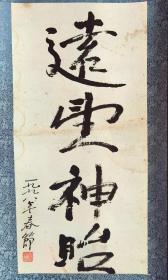 遠望神貽
一九九八年春節